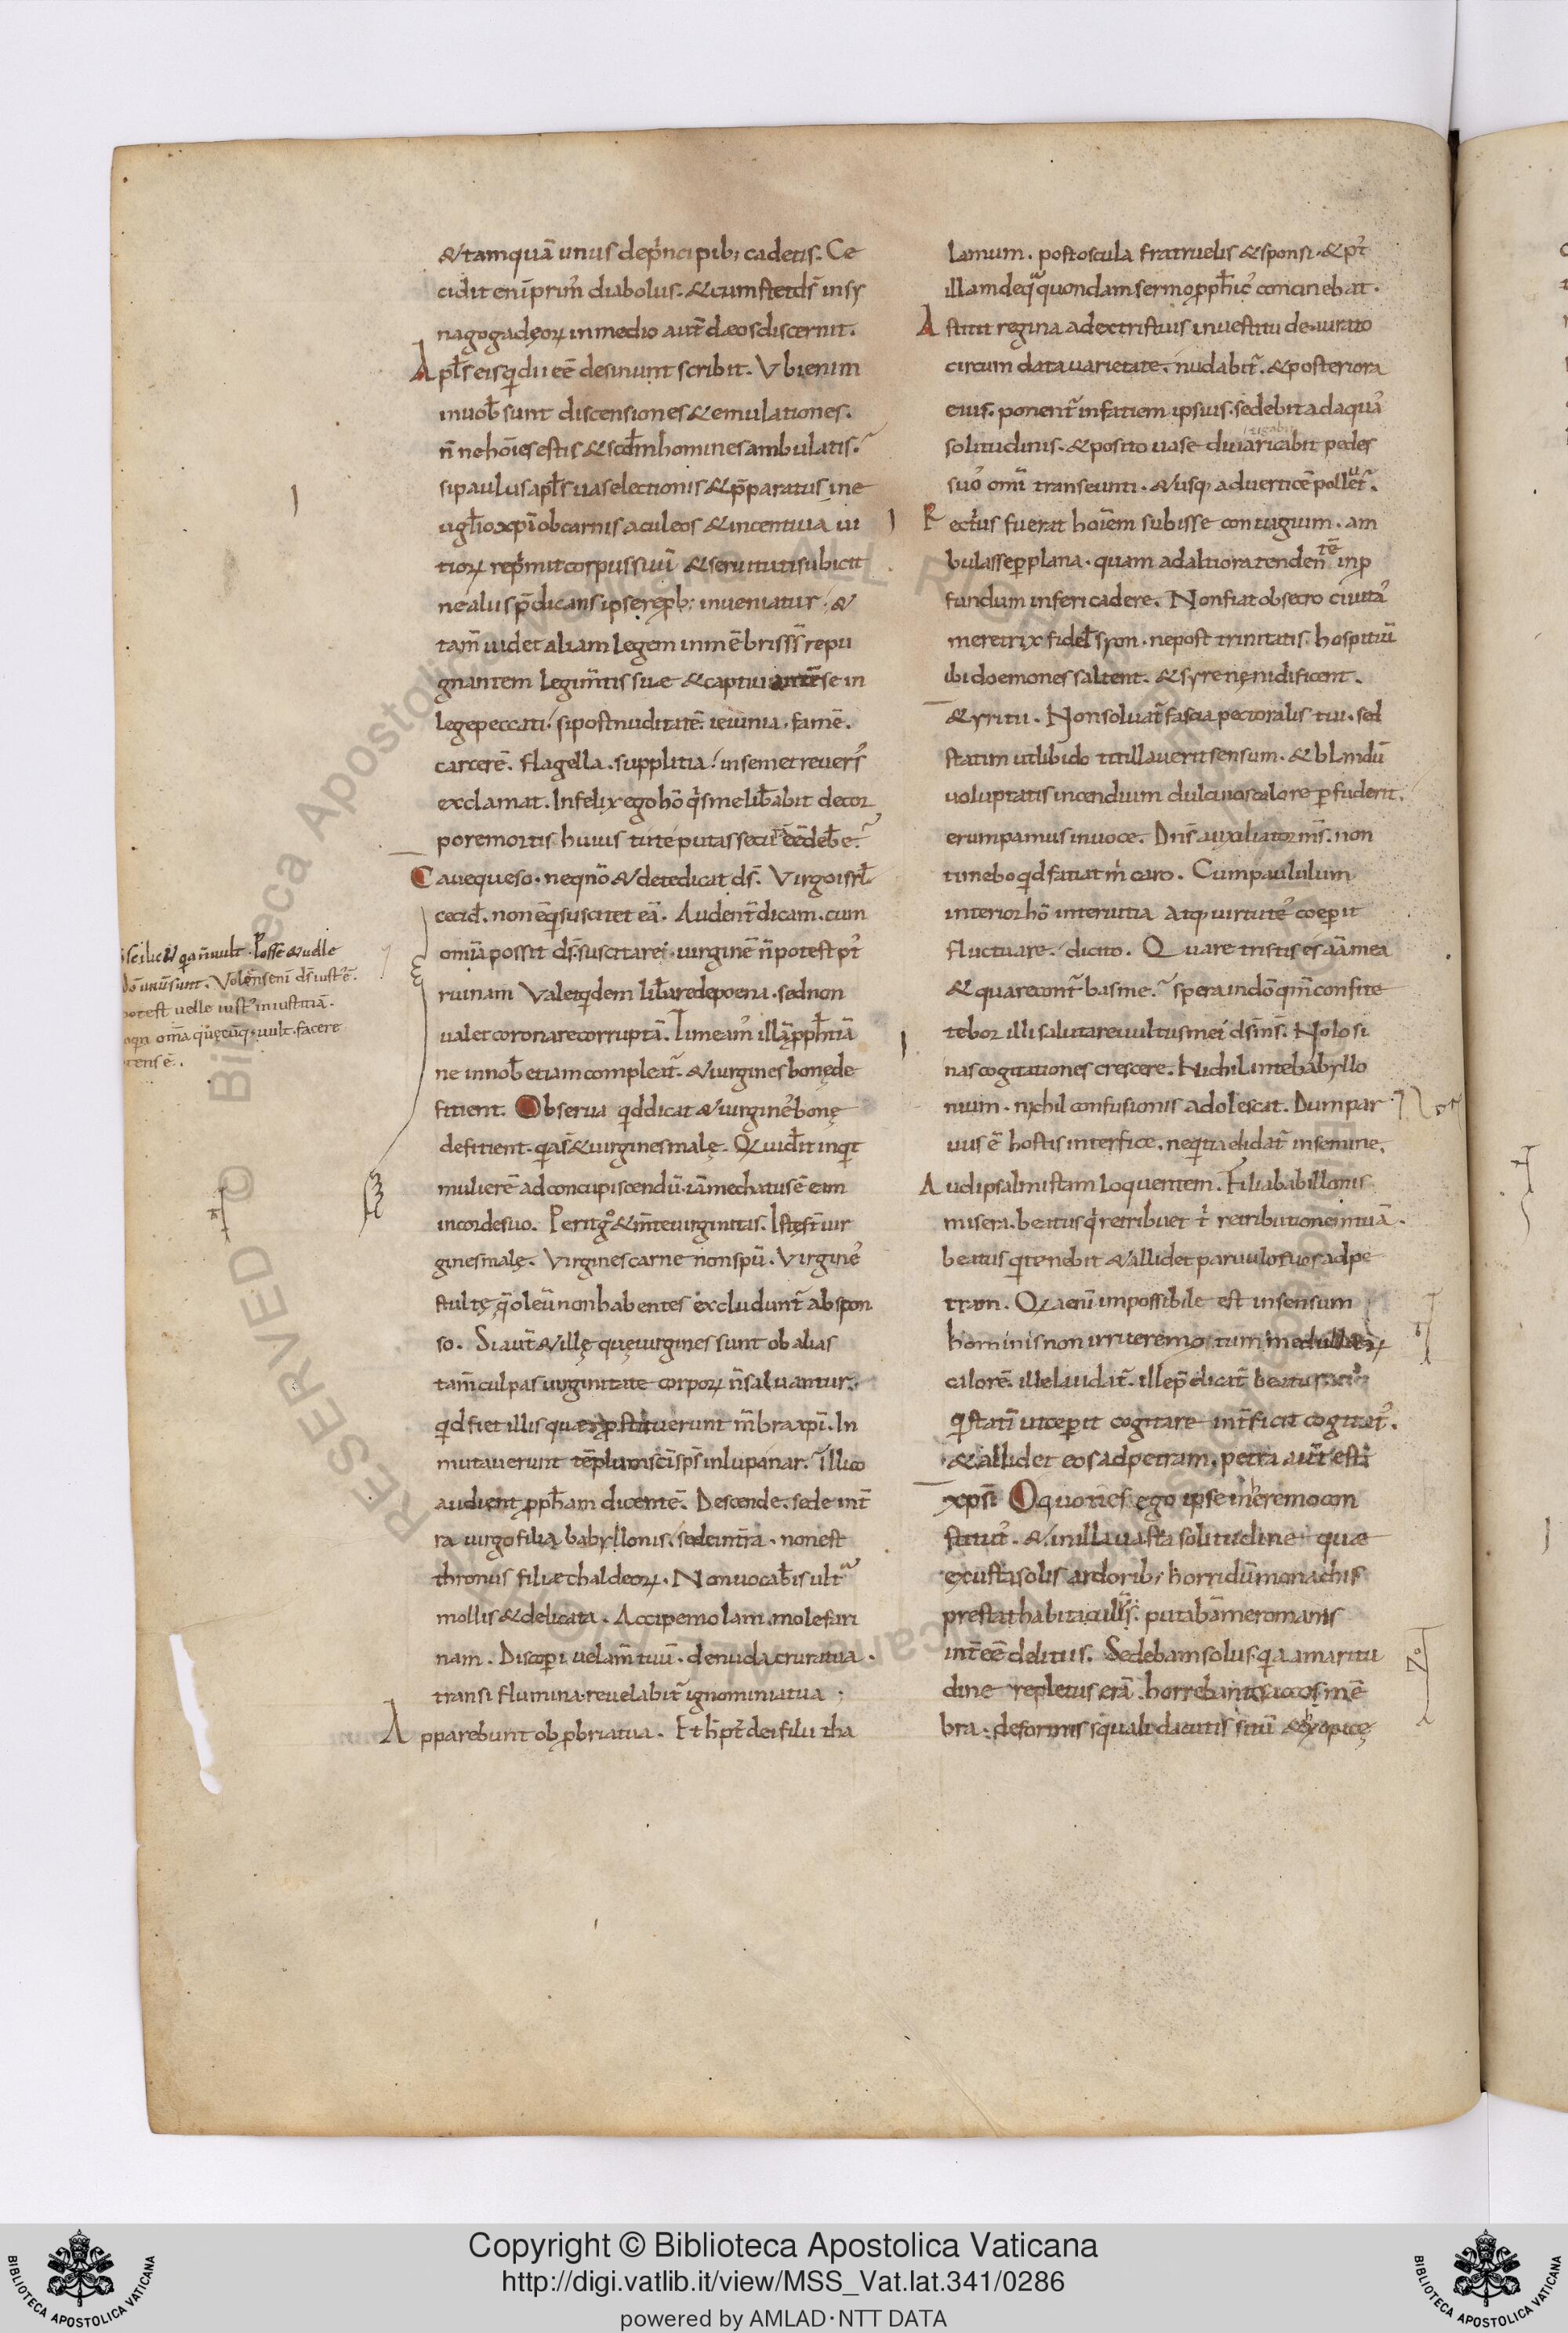 & tamquā unus de prīncipib; cadetis. Ce
cidit enī prim᾽ diabolus. & cum stet ds̄ in sy
nagoga dęoꝝ in medio aut̄ dæos discernit.
Apl̄s eis qui dii eē desinunt scribit. Vbi enim
in uob̄ sunt discensiones & emulationes.
n̄ne hōies estis & scd̄m homines ambulatis.
si paulus apl̄s uas electionis & p̄paratus in e
ugl̄io xp̄i ob carnis aculeos & incentiua ui
tioꝝ rep̄mit corpus suū & seruituti subicit
ne aliis p̄dicans ipse reꝓb; inueniatur. &
tam̄ uidet aliam legem in mēbris s̄s̄ repu
gnantem legi m̄tis suæ & captiuantē se in
lege peccati. si post nuditatē. ieiunia. famē.
carcerē. flagella. supplitia. in semet reuers᾽
exclamat. Infelix ego hō q̄s me lib̄abit de cor
pore mortis huius tu te putas secū eē deb̄e.
Caue queso. neqn̄o & de te dicat ds̄. Virgo isrl̄
cecid̄. non ē q̄ suscitet eā. Audent̄ dicam. cum
omīa possit ds̄. suscitare uirginē n̄ potest p᾽t
ruinam Valet q̄dem lib̄are de poena. sed non
ualet coronare corruptā. Timeam᾽ illā ꝓph̄tiā
ne in nob̄ etiam compleat̄. & uirgines bonę de
fitient. Obserua qd dicat & uirgine᾽ bonę
defitient. q̄a s̄ & uirgines malę. Qui uid̄it inqt
mulierē ad concupiscendū. iā mechatus ē eam
in corde suo. Perit g̊ & m̄te uirginitas. Istę st̄ uir
gines malę. Virgines carne non sp̄u. Virgine᾽
stultę q̄ oleū non habentes excludunt̄ ab spon
so. Si aut̄ & illę quę uirgines sunt ob alias
tam̄ culpas uirginitate corpoꝝ n̄ saluantur.
qd fiet illis quæ ꝓstituerunt m̄bra xp̄i. In
mutauerunt tēplum sc̄i sp̄s in lupanar. Illico
audient ꝓph̄am dicentē. Descende. sede in t̄
ra uirgo filia babyllonis. sede in t̄ra. non est
thronus filiæ chaldeoꝝ. Non uocab̄is ult̄
mollis & delicata. Accipe molam. mole fari
nam. Discoꝑi uelam̄ tuū. denuda crura tua.
transi flumina. reuelabit̄ ignominia tua.
Apparebunt obꝓbria tua. Et h̄ p᾽t dei filii tha
lamum. post oscula fratruelis & sponsi. & p᾽t
illam de qua quondam sermo ꝓph̄ic᾽ concinebat.
Astitit regina a dextris tuis in uestitu deaurato
circumdata uarietate. nudabit̄. & posteriora
eius. ponent̄ in fatiem ipsius. sedebit ad aqua᾽
solitudinis. & posito uase diuaricabit pedes
suo᾽ omī transeunti. & usq; ad uerticē polluet̄.
Rectius fuerat hoīem subisse coniugium. am
bulasse ꝑ plana. quam ad altiora tendentē in ꝓ
fundum inferi cadere. Non fiat obsecro ciuita᾽
meretrix fidel̄ syon. ne post trinitatis hospitiū
ibi doemones saltent. & syrenę nidificent.
& yritii. Non soluat̄ fascia pectoralis tui. sed
statim ut libido titillauerit sensum. & blandū
uoluptatis incendium dulci nos calore ꝑfuderit.
erumpamus in uoce. Dn̄s auxiliator m̄s. non
timebo qd fatiat m̄ caro. Cum paululum
interior hō inter uitia atq; uirtute᾽ coeꝑit
fluctuare. dicito. Quare tristis es aīa mea
& quare cont̄bas me. spera in dō qm̄ confite
tebor illi salutare uultus mei ds̄ ms̄. Nolo si
nas cogitationes crescere. Nichil in te babyllo
nium. nichil confusionis adolescat. Dum par
uus ē hostis interfice. nequitia elidat̄ in semine.
Audi psalmistam loquentem. Filia babillonis
misera. beatus q̄ retribuet t̄ retributionem tuā.
beatus q̄ tenebit & allidet paruulos tuos ad pe
tram. Quia enī impossibile est in sensum
hominis non irruere motum medullaꝝ
calorē. ille laudat̄. ille p̄dicat̄ beatus
q̄ statī ut ceꝑit cogitare int̄ficit cogitat᾽.
& allidet eos ad petram. petra aut̄ est
xp̄s. O quoties ego ipse in heremo con
stitut᾽. & in illa uasta solitudine quæ
exusta solis ardorib; horridū monachis
prestat habitaculū. putabā me romanis
int̄ eē delitiis. Sedebam solus. q̄a amaritu
dine repletus erā. horrebant sacco mē
bra. deformis squalida cutis sitū & hyopicę
uult. Posse & uelle
unū sunt. Volens enī ds̄ iust᾽ ē.
potest uelle iust᾽ iniustitiā.
omīa quęcūq; uult. facere
Copyright © Biblioteca Apostolica Vaticana
http://digi.vatlib.it/view/MSS_Vat.lat.341/0286
powered by AMLAD · NTT DATA
BIBLIOTECA APOSTOLICA VATICANA
BIBLIOTECA APOSTOLICA VATICANA